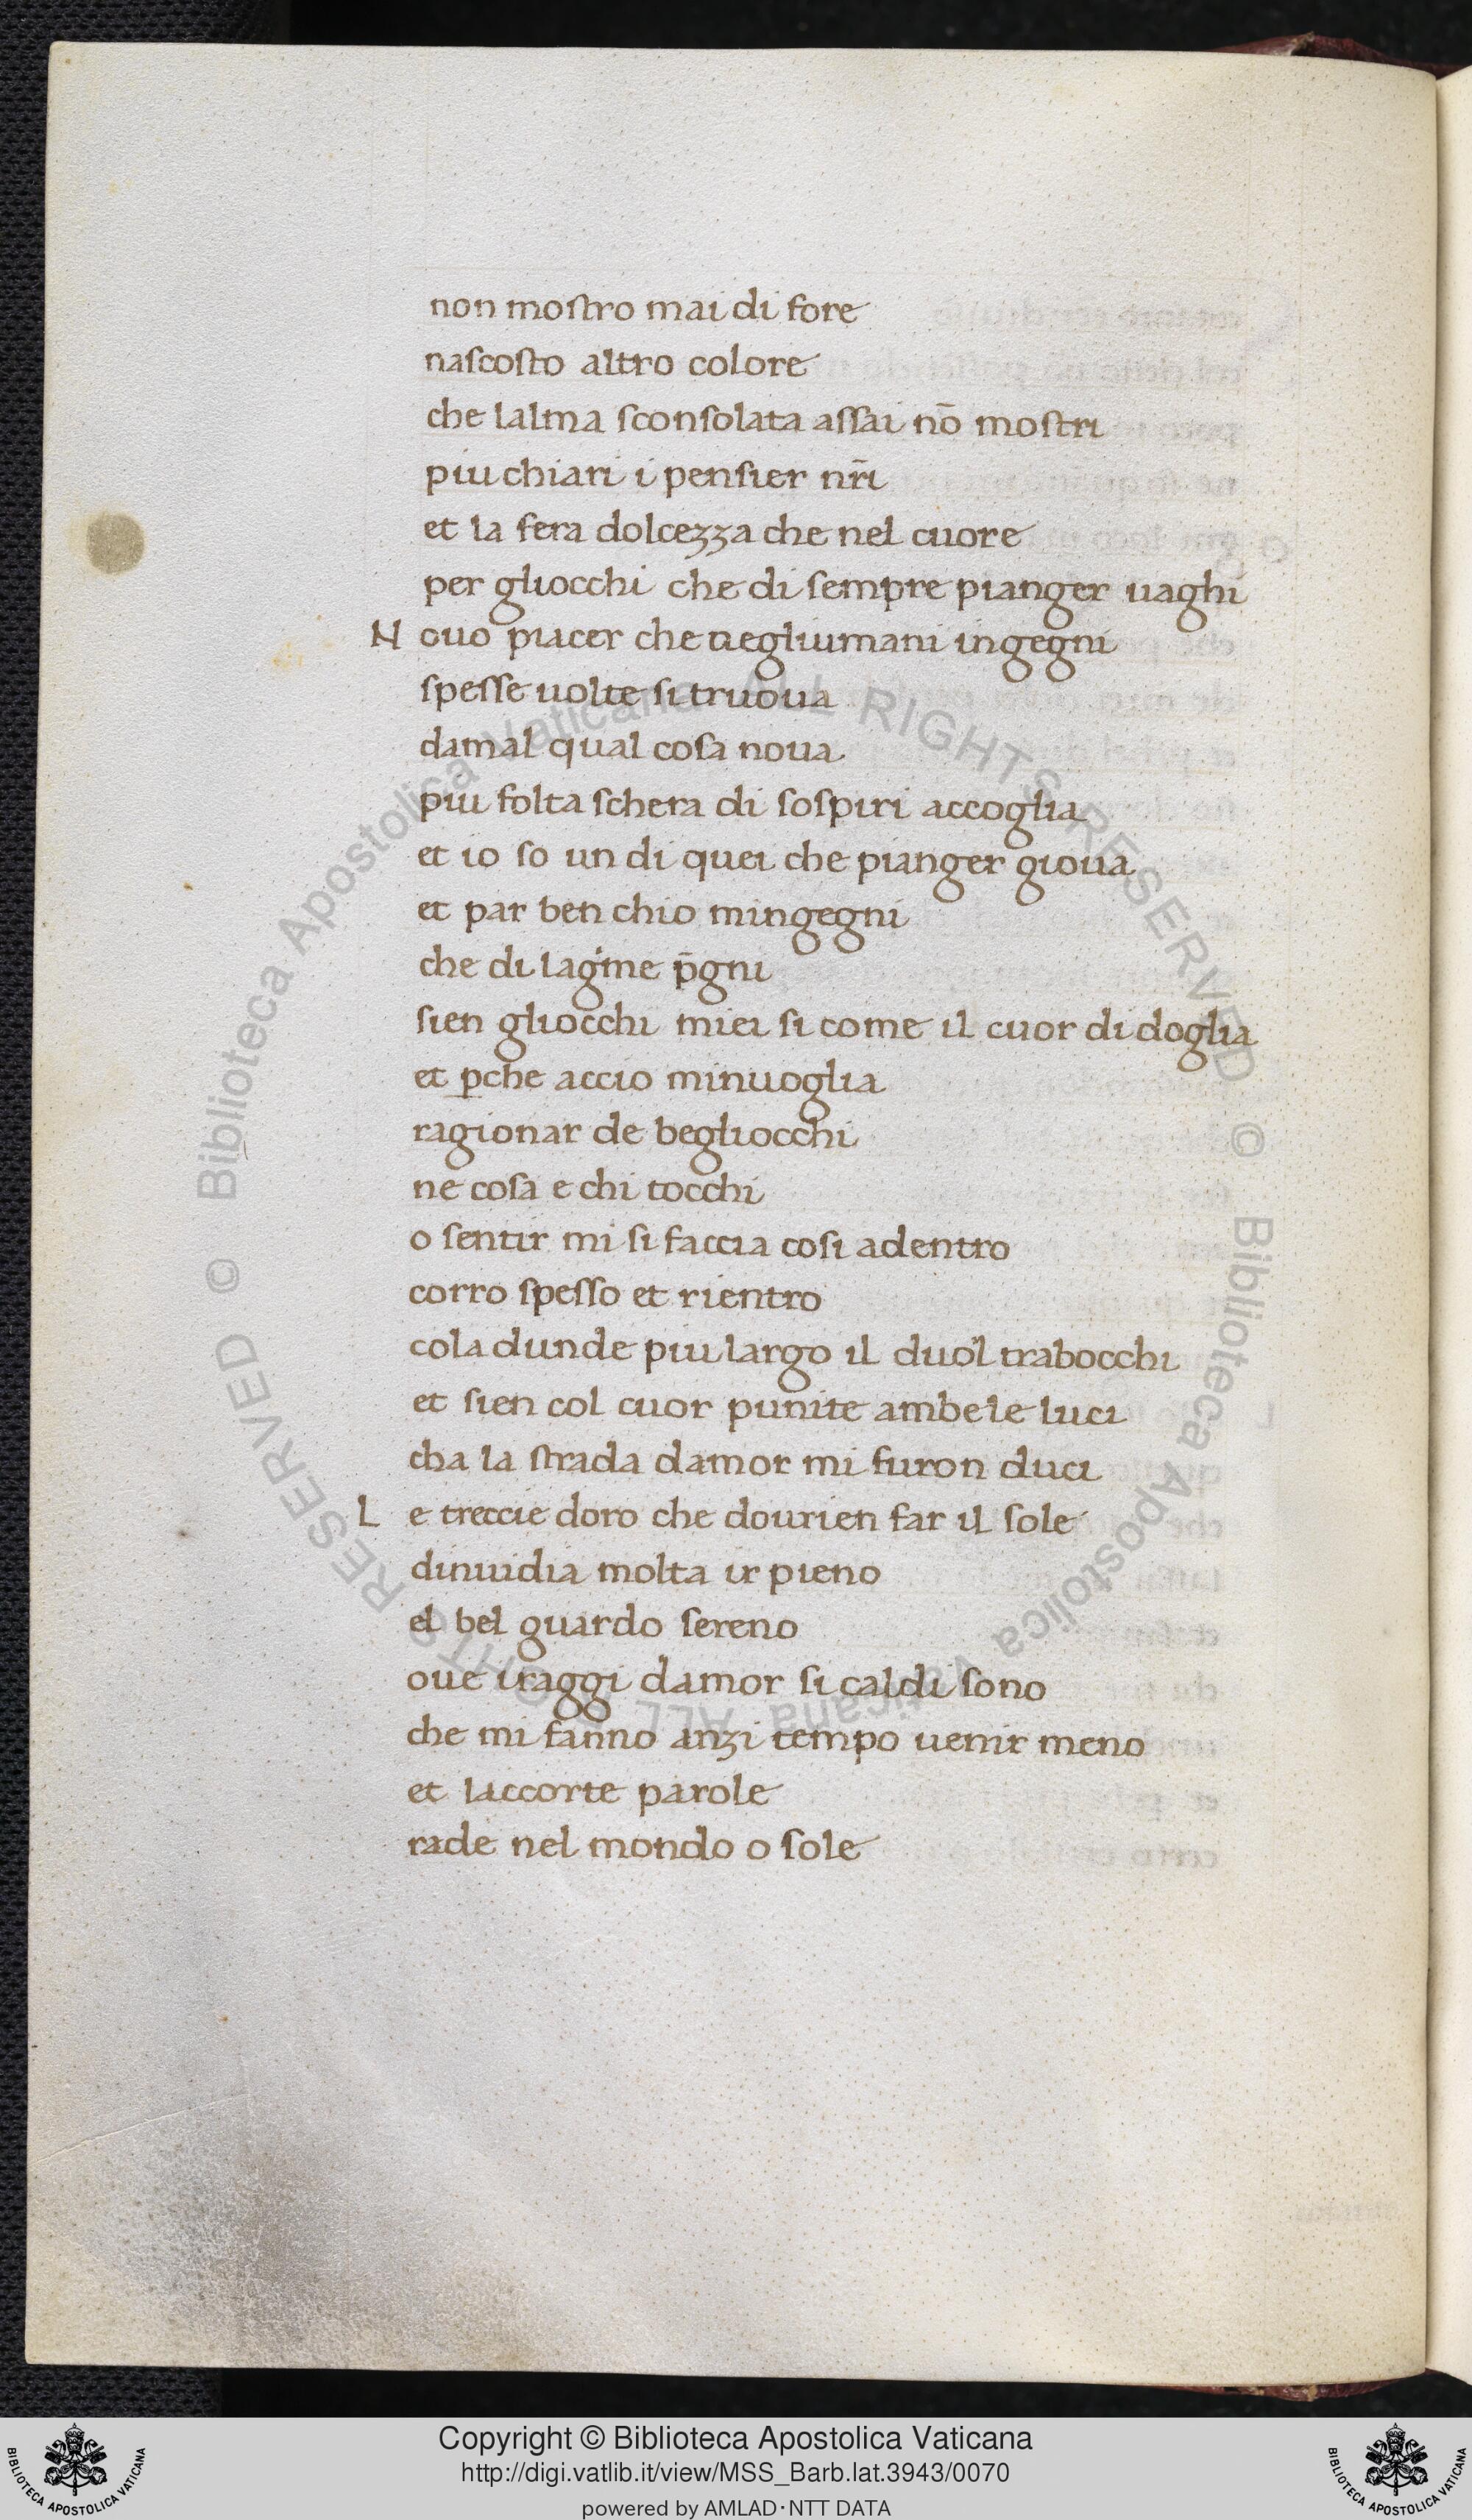 non moſtro mai di fore
naſcoſto altro colore
che lalma ſconſolata aſſai nō moſtri
piu chiari i penſier nr̄i
et la fera dolcezza che nel cuore
per gliocchi che di ſempre pianger uaghi
N ouo piacer che negliumani ingegni
ſpeſſe uolte ſi truoua
damal qual coſa noua
piu folta ſchera di ſoſpiri accoglia
et io ſo un di quei che pianger gioua
et par ben chio mingegni
che di lagime p̄gni
ſien gliocchi miei ſi come il cuor di doglia
et ꝑche accio minuoglia
ragionar de begliocchi
ne coſa e chi tocchi
o ſentir mi ſi faccia coſi adentro
corro ſpeſſo et rientro
cola dunde piu largo il duol trabocchi
et ſien col cuor punite ambe le luci
cha la ſtrada damor mi furon duci
L e treccie doro che dourien far il ſole
dinuidia molta ir pieno
el bel guardo ſereno
oue iraggi damor ſi caldi ſono
che mi fanno anzi tempo uenir meno
et laccorte parole
rade nel mondo o ſole
© Biblioteca Apostolica Vaticana ALL RIGHTS RESERVED © Biblioteca Apostolica Vaticana ALL RIGHTS RESERVED
Copyright © Biblioteca Apostolica Vaticana
http://digi.vatlib.it/view/MSS_Barb.lat.3943/0070
powered by AMLAD·NTT DATA
BIBLIOTECA APOSTOLICA VATICANA
BIBLIOTECA APOSTOLICA VATICANA